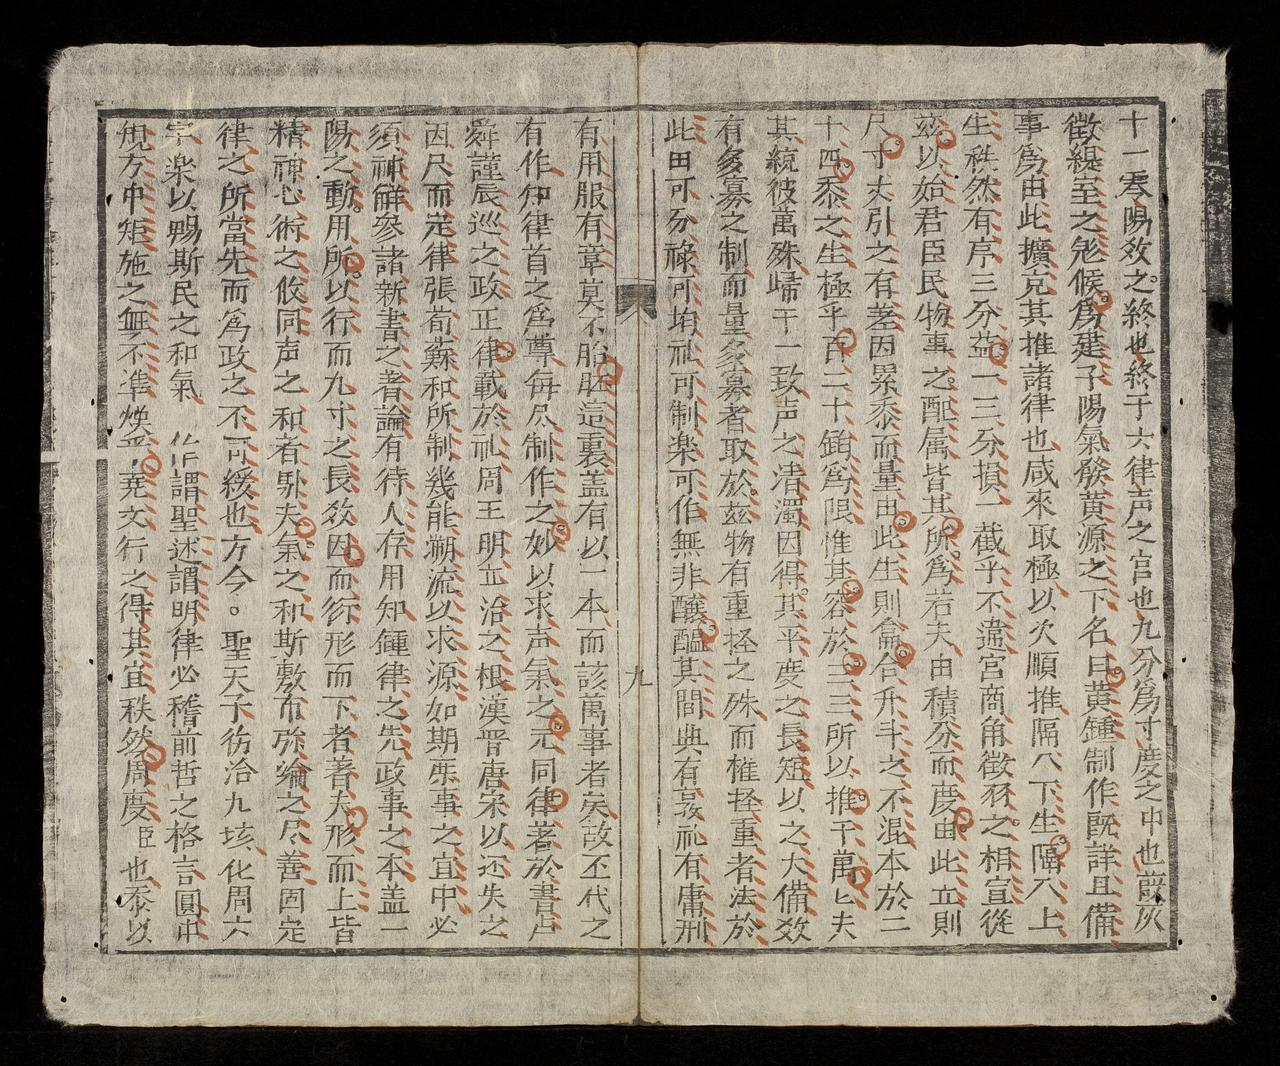 十一零陽效之終也終于六律声之宫也九分爲寸度之中也葭灰
徵緹至之氣候爲建子陽氣發黄源之下名曰黄鍾制作既詳且備
事爲由此擴充其推諸律也咸來取極以次順推隔八下生隔六上
生秩然有序三分益一三分損一截乎不違宫商角徵羽之相宣從
兹以始君臣民物事之配属皆其所爲若夫由積分而度由此立則
尺寸丈引之有差因累黍而量由此生則龠合升斗之不混本於二
十四黍之生極乎百二十龠爲限惟其容於三三所以推千萬匕夫
其統彼萬殊歸于一致声之清濁因得其平度之長短以之大備效
有多寡之制而量多寡者取於兹物有重轻之殊而權轻重者法於
此田可分禄可均礼可制楽可作無非醸醞其間典有㝡礼有庸刑
九
有用服有章莫不胎胚這裏盖有以一本而該萬事者矣故丕代之
有作知律首之爲尊每尽制作之妙以求声氣之元同律著於書声
舜謹辰巡之政正律載於礼周王明立治之根漢晋唐宋以还失之
因尺而定律張荀蘇和所制幾能溯流以求源如期乐事之宜中必
須神解參諸新書之著論有待人存用知鍾律之先政事之本盖一
陽之動用所以行而九寸之長效因而衍形而下者著夫形而上皆
精神心術之攸同声之和者馴夫氣之和斯敷布弥綸之尽善固定
律之所當先而爲政之不可緩也方今。聖天子彷洽九垓化周六
字楽以賜斯民之和氣 作謂聖述謂明律必稽前哲之格言圓中
規方中矩施之無不準焕乎尭文行之得其宜秩然周度臣也忝以